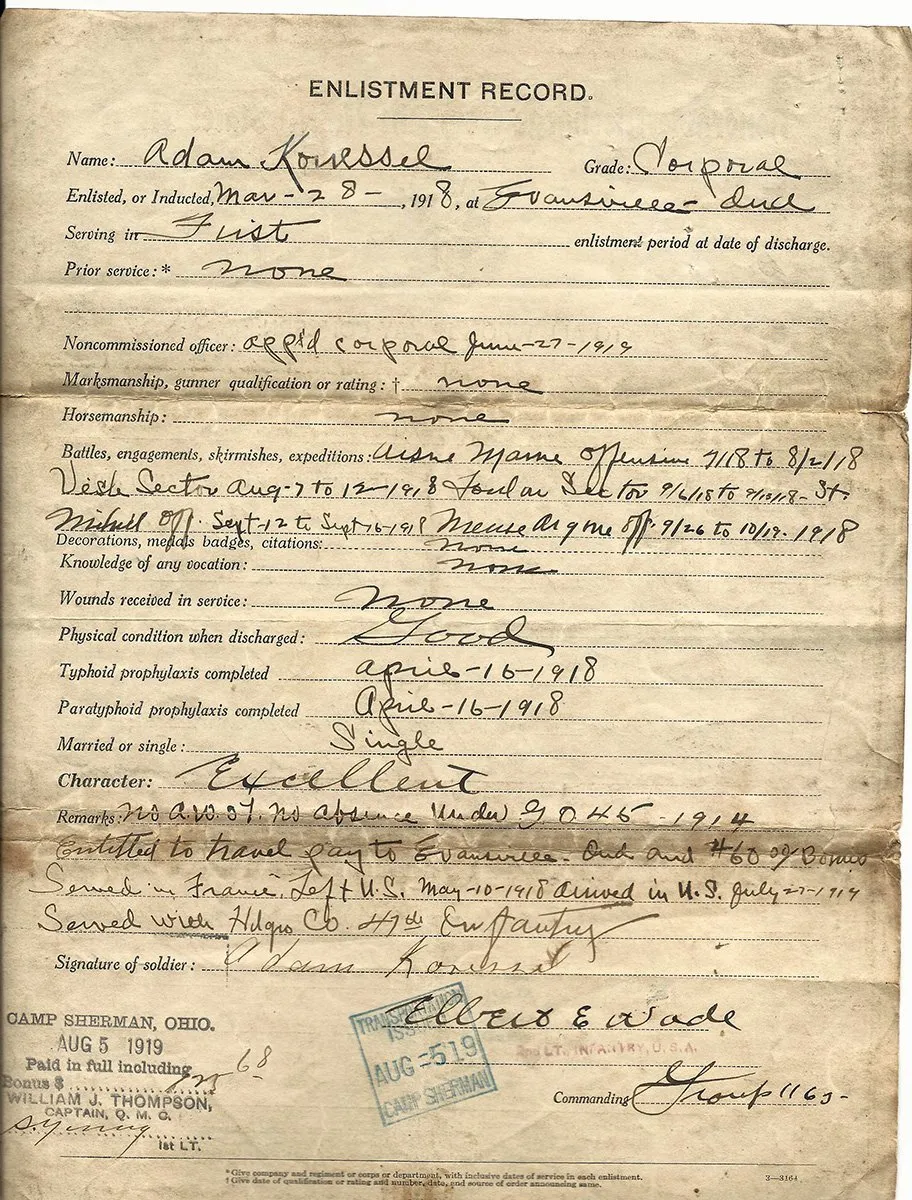 ENLISTMENT RECORD.
Name: Adam Konessel Grade: Corporal
Enlisted, or Inducted, Mar-28-, 1918, at Evansville- Ind
Serving in First enlistment period at date of discharge.
Prior service: * none
Noncommissioned officer: app'd corporal June-27-1919
Marksmanship, gunner qualification or rating: † none
Horsemanship: none
Battles, engagements, skirmishes, expeditions: Aisne Marne offensive 7/18 to 8/2/18
Vesle Sector Aug-7 to 12-1918 Sector 9/6/18 to St.
Mihiel Off. Sept-12 to Sept-16-1918 Meuse Argonne off. 9/26 to 10/19. 1918
Decorations, medals badges, citations: none
Knowledge of any vocation: none
Wounds received in service: none
Physical condition when discharged: Good
Typhoid prophylaxis completed april-16-1918
Paratyphoid prophylaxis completed April-16-1918
Married or single: Single
Character: Excellent
Remarks: No A.W.O.L. no absence Under G O 45 -1914
Entitled to travel pay to Evansville- Ind and $60 Bonus
Served in France, Left U.S. May-10-1918 arrived in U.S. July-27-1919
Served with Hdqrs Co. 47th Infantry
Signature of soldier: Adam
Elbert E Wade
2nd LT. INFANTRY, U.S.A.
Commanding Group 1163-
CAMP SHERMAN, OHIO.
AUG 5 1919
Paid in full including
Bonus $ 68
WILLIAM J. THOMPSON,
CAPTAIN, Q. M. C.
1st LT.
TRANSPORTATION
AUG -5 19
CAMP SHERMAN
*Give company and regiment or corps or department, with inclusive dates of service in each enlistment.
†Give date of qualification or rating and number, date, and source of order announcing same.
3—3164